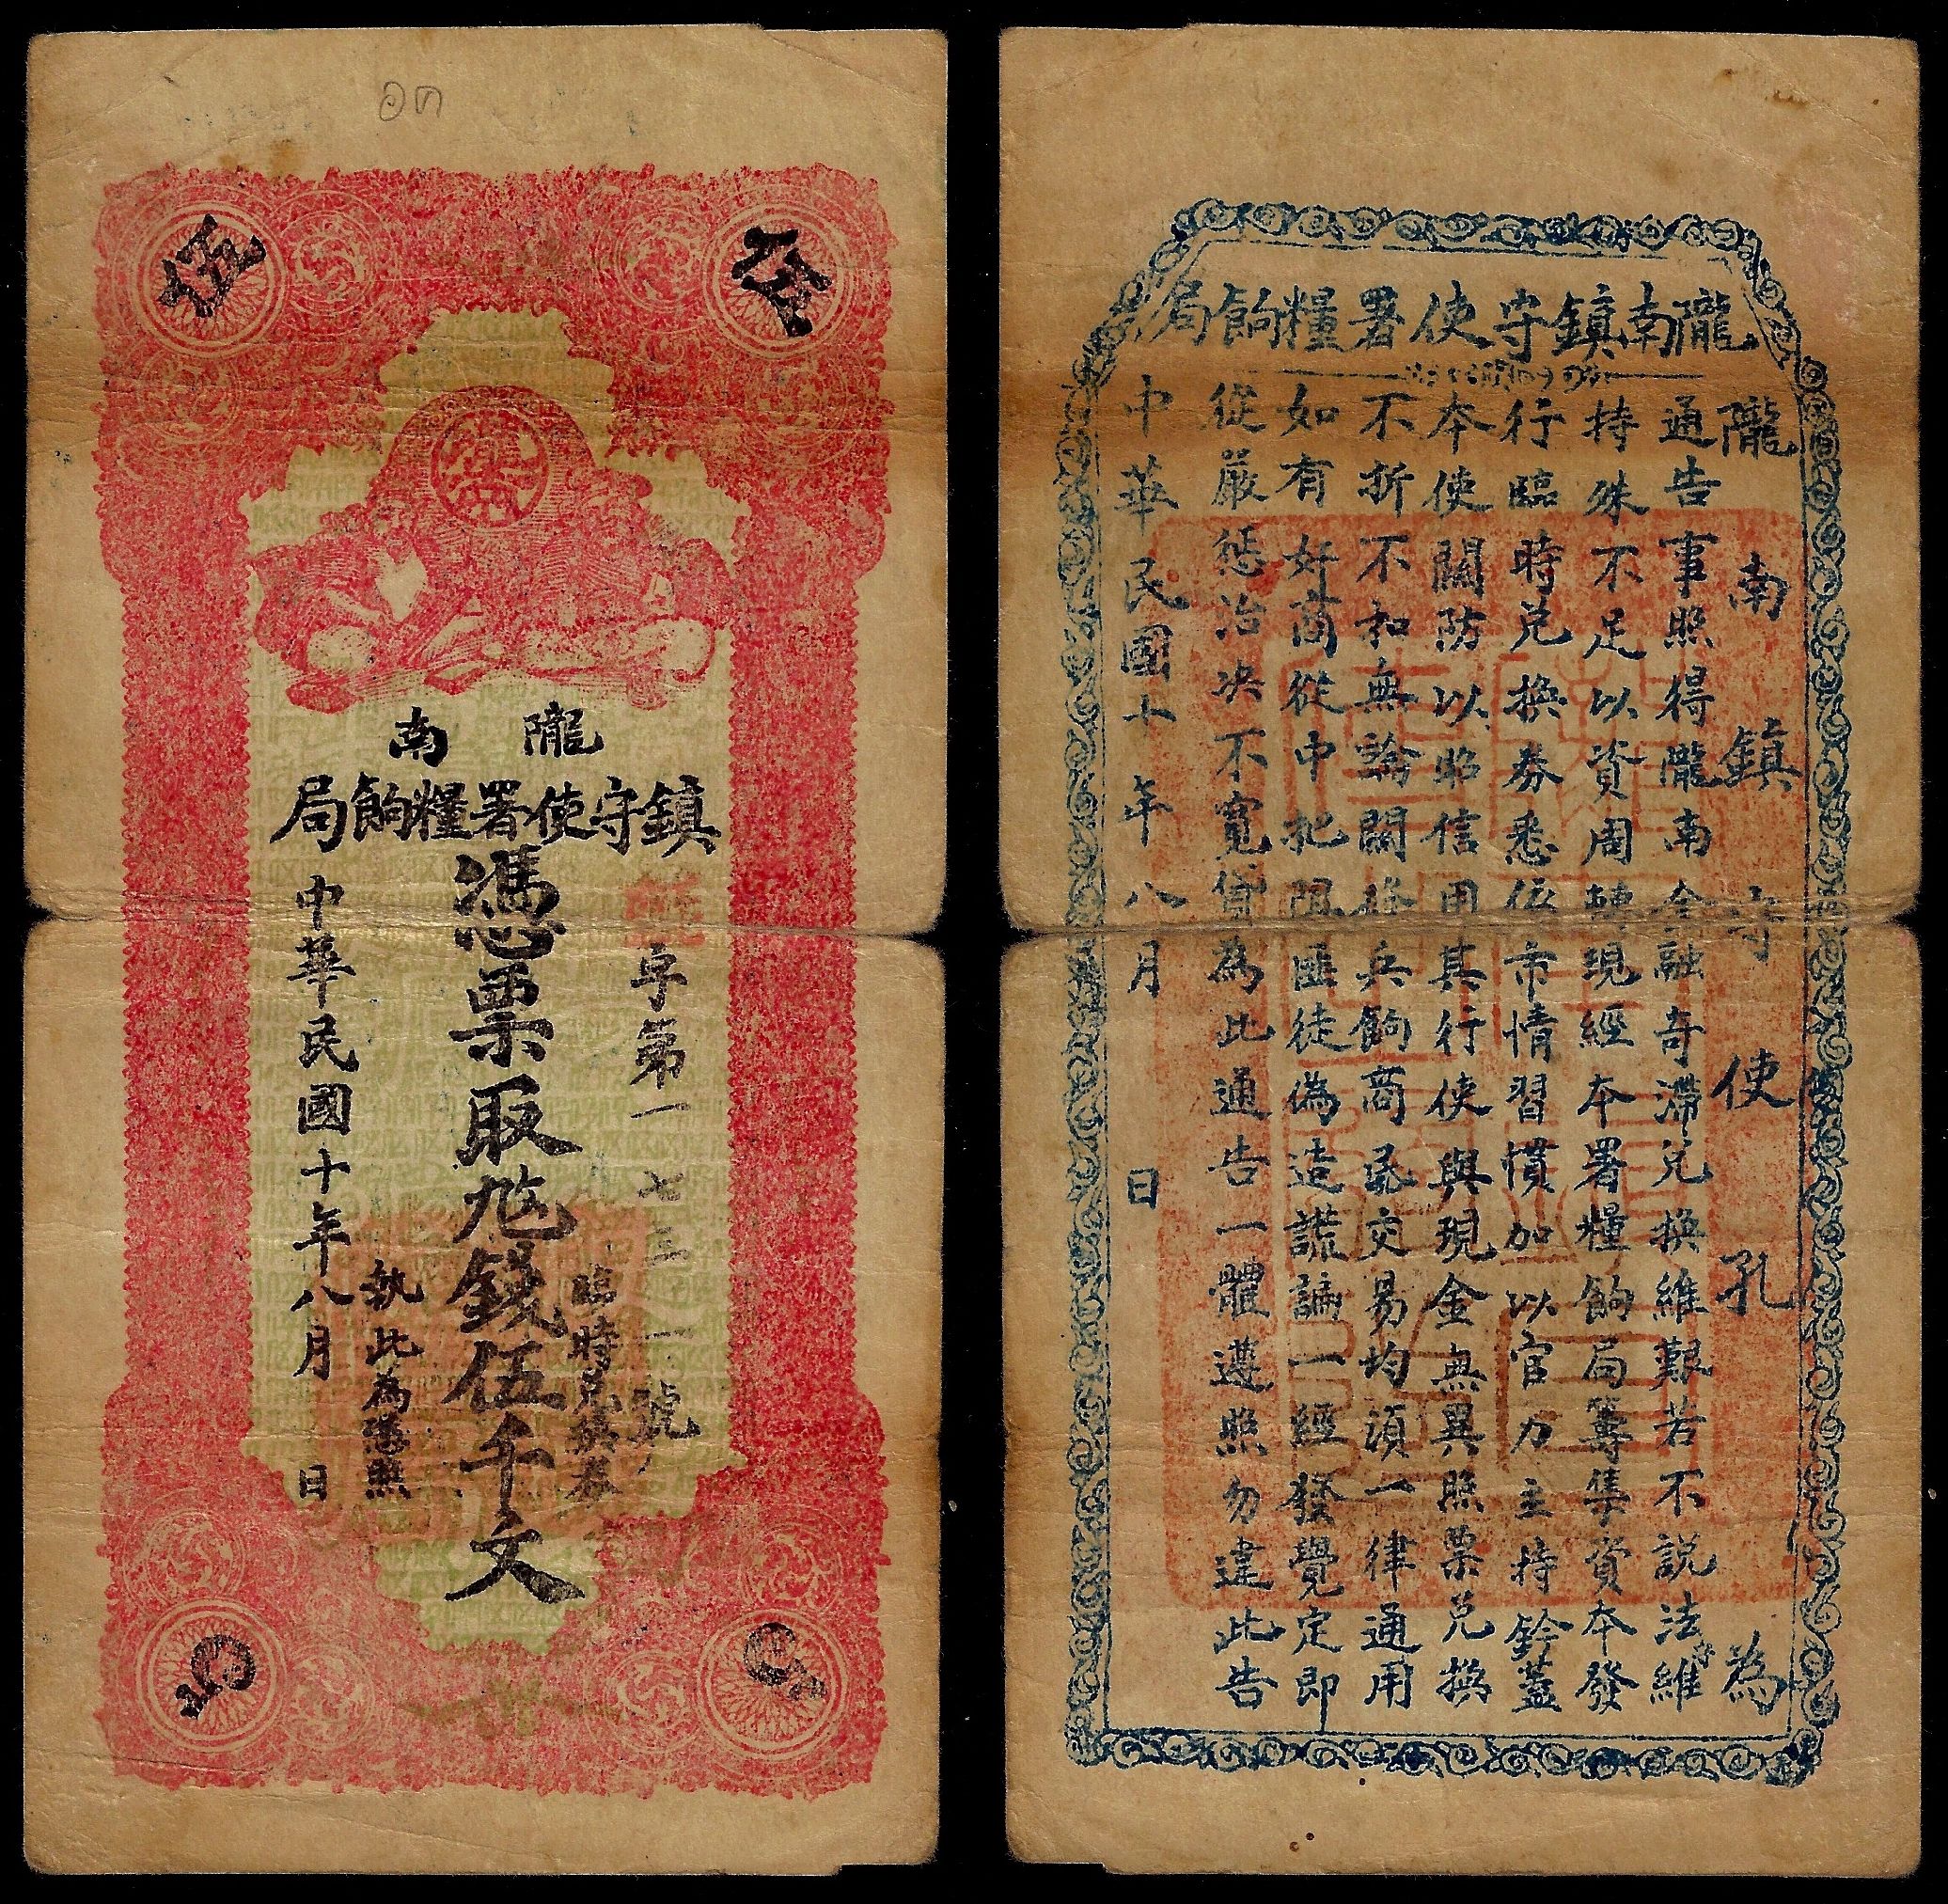 伍
伍
隴南
鎮守使署糧餉局
字第一七三一號
臨時兑換券
憑票取尅錢伍千文
執此為憑照
中華民國十年八月 日
隴南鎮守使署糧餉局
隴南鎮守使孔 為
通告事照得隴南金融奇滯兑換維艱若不説法維
持殊不足以資周轉現經本署糧餉局籌集資本發
行臨時兑換券悉依市情習慣加以官力主持鈐蓋
本使關防以昭信用其行使與現金無異照票兑換
不折不扣無論關發兵餉商民交易均須一律通用
如有奸商從中把阻匪徒偽造謊謅一經發覺定即
從嚴懲治决不寬貸為此通告一體遵照勿違此告
中華民國十年八月 日